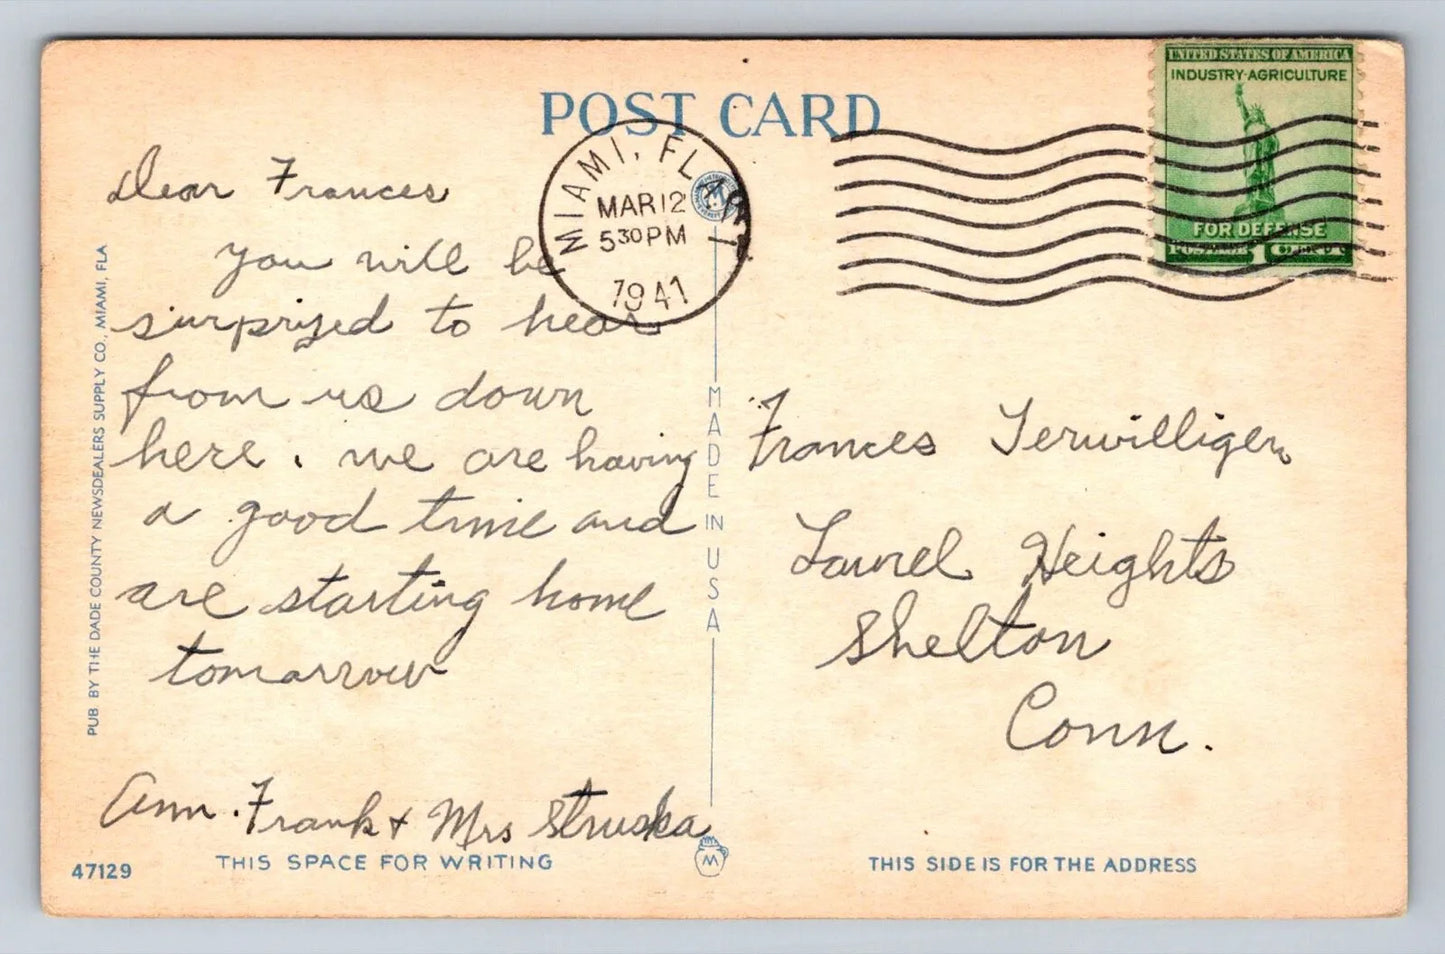 POST CARD
UNITED STATES OF AMERICA
INDUSTRY-AGRICULTURE
FOR DEFENSE
POSTAGE 1 CENT
MIAMI, FLA
MAR 12
5 30 PM
1941
Dear Frances
You will be
surprized to hear
from us down
here. we are having
a good time and
are starting home
tomarrow
Ann. Frank & Mrs Struska
Frances Terwilliger
Laurel Heights
Shelton
Conn.
PUB BY THE DADE COUNTY NEWSDEALERS SUPPLY CO., MIAMI, FLA
MADE IN USA
47129
THIS SPACE FOR WRITING
M
THIS SIDE IS FOR THE ADDRESS